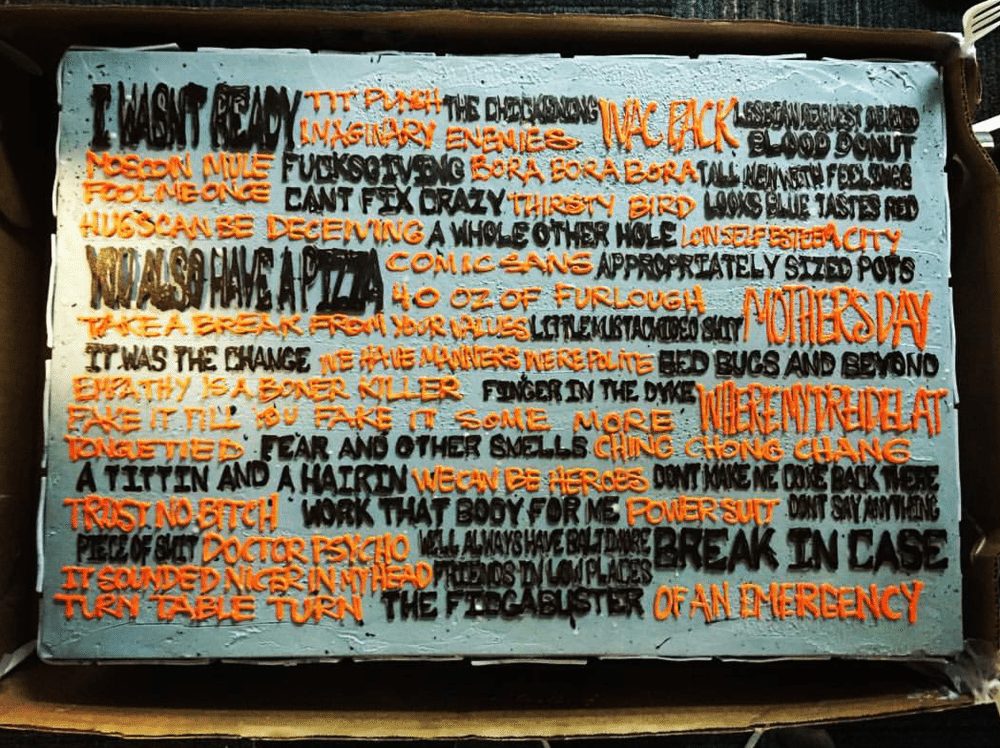 I WASN'T READY TIT PUNCH THE CHICKENING WAC PACK LESBIAN REQUEST DENIED
IMAGINARY ENEMIES BLOOD DONUT
MOSCOW MULE FUCKSGIVING BORA BORA BORA TALL MEN WITH FEELINGS
FOOL ME ONCE CAN'T FIX CRAZY THIRSTY BIRD LOOKS BLUE TASTES RED
HUGS CAN BE DECEIVING A WHOLE OTHER HOLE LOW SELF ESTEEM CITY
YOU ALSO HAVE A PIZZA COMIC SANS APPROPRIATELY SIZED POTS
40 OZ OF FURLOUGH MOTHER'S DAY
TAKE A BREAK FROM YOUR VALUES LITTLE MUSTACHIOED SHIT
IT WAS THE CHANGE WE HAVE MANNERS WERE POLITE BED BUGS AND BEYOND
EMPATHY IS A BONER KILLER FINGER IN THE DYKE WHERE MY DREIDEL AT
FAKE IT TILL YOU FAKE IT SOME MORE
TONGUE TIED FEAR AND OTHER SMELLS CHING CHONG CHANG
A TITTIN AND A HAIRIN WE CAN BE HEROES DONT MAKE ME COME BACK THERE
TRUST NO BITCH WORK THAT BODY FOR ME POWER SUIT DONT SAY ANYTHING
PIECE OF SHIT DOCTOR PSYCHO WE'LL ALWAYS HAVE BALTIMORE BREAK IN CASE
IT SOUNDED NICER IN MY HEAD FRIENDS IN LOW PLACES
TURN TABLE TURN THE FIDGABUSTER OF AN EMERGENCY